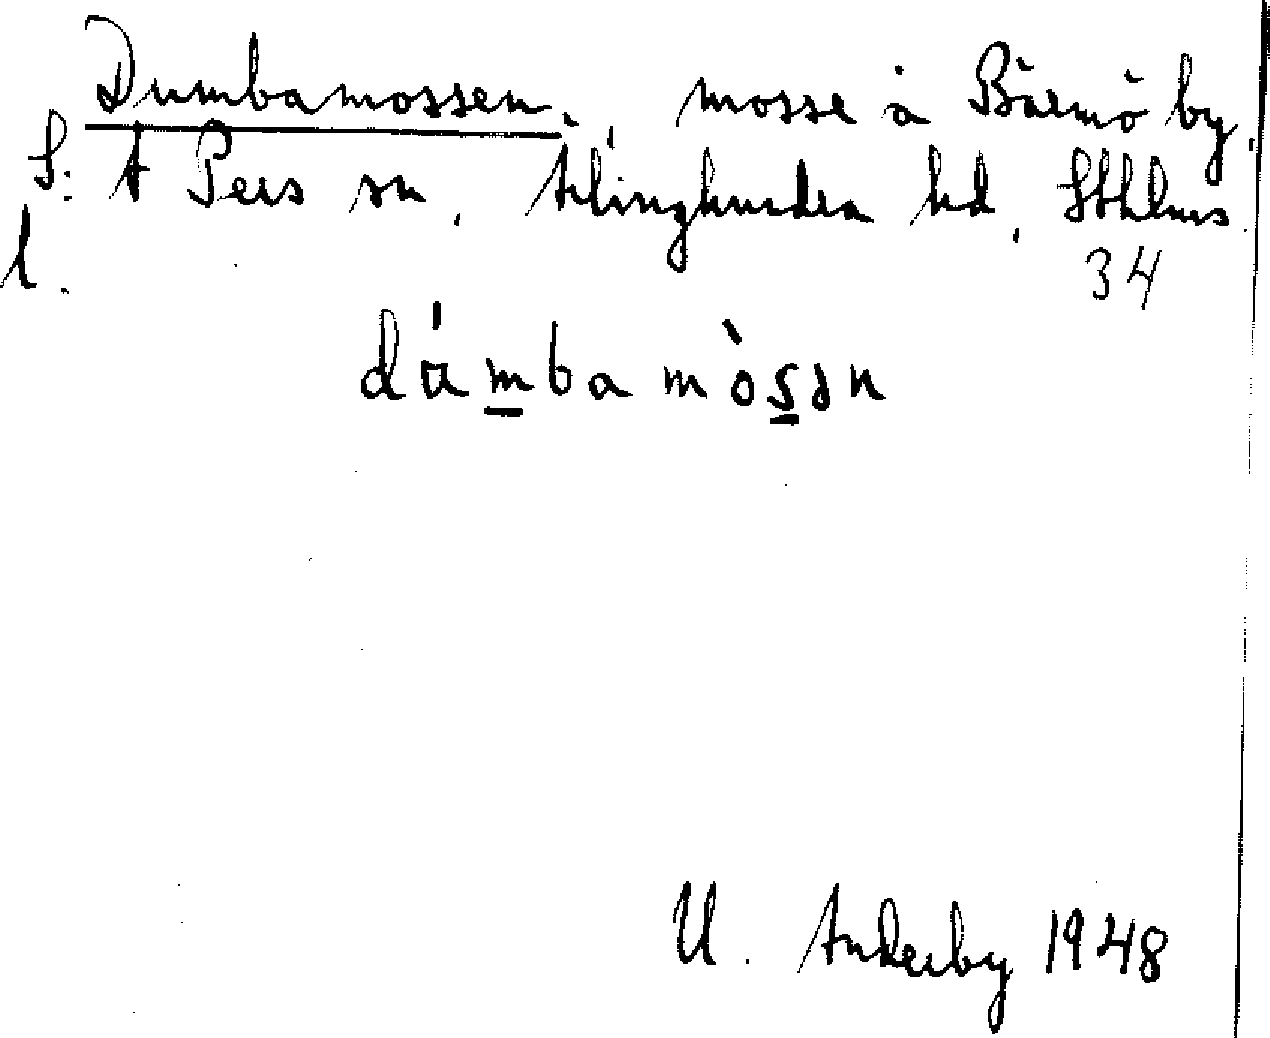 Dumbamossen, mosse å Bärmö by,
S:t Pers sn, Ärlinghundra hd, Sthlms
l. 34
dúmbamòsən
U. Anderby 1948